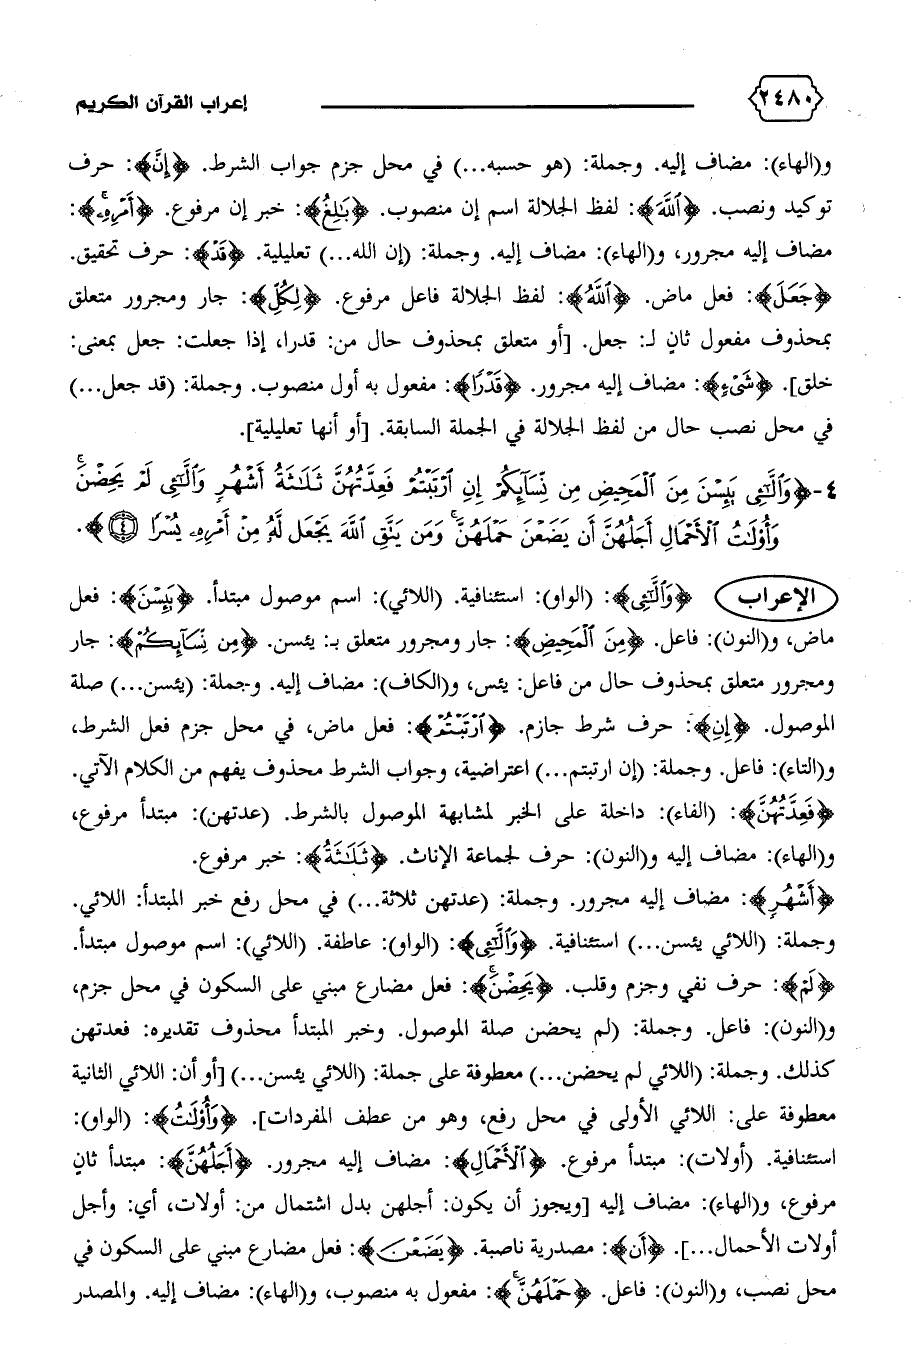 ٢٤٨٠ إعراب القرآن الكريم
و(الهاء): مضاف إليه. وجملة: (هو حسبه...) في محل جزم جواب الشرط. ﴿إِنَّ﴾: حرف
توكيد ونصب. ﴿ٱللَّهَ﴾: لفظ الجلالة اسم إن منصوب. ﴿بَٰلِغُ﴾: خبر إن مرفوع. ﴿أَمۡرِهِۦۚ﴾:
مضاف إليه مجرور، و(الهاء): مضاف إليه. وجملة: (إن الله...) تعليلية. ﴿قَدۡ﴾: حرف تحقيق.
﴿جَعَلَ﴾: فعل ماض. ﴿ٱللَّهُ﴾: لفظ الجلالة فاعل مرفوع. ﴿لِكُلِّ﴾: جار ومجرور متعلق
بمحذوف مفعول ثانٍ لـ: جعل. [أو متعلق بمحذوف حال من: قدرا، إذا جعلت: جعل بمعنى:
خلق]. ﴿شَيۡءٖ﴾: مضاف إليه مجرور. ﴿قَدۡرٗا﴾: مفعول به أول منصوب. وجملة: (قد جعل...)
في محل نصب حال من لفظ الجلالة في الجملة السابقة. [أو أنها تعليلية].
٤- ﴿وَٱلَّٰٓـِٔي يَئِسۡنَ مِنَ ٱلۡمَحِيضِ مِن نِّسَآئِكُمۡ إِنِ ٱرۡتَبۡتُمۡ فَعِدَّتُهُنَّ ثَلَٰثَةُ أَشۡهُرٖ وَٱلَّٰٓـِٔي لَمۡ يَحِضۡنَۚ
وَأُوْلَٰتُ ٱلۡأَحۡمَالِ أَجَلُهُنَّ أَن يَضَعۡنَ حَمۡلَهُنَّۚ وَمَن يَتَّقِ ٱللَّهَ يَجۡعَل لَّهُۥ مِنۡ أَمۡرِهِۦ يُسۡرٗا ﴿٤﴾﴾.
الإعراب ﴿وَٱلَّٰٓـِٔي﴾: (الواو): استئنافية. (اللائي): اسم موصول مبتدأ. ﴿يَئِسۡنَ﴾: فعل
ماض، و(النون): فاعل. ﴿مِنَ ٱلۡمَحِيضِ﴾: جار ومجرور متعلق بـ: يئسن. ﴿مِن نِّسَآئِكُمۡ﴾: جار
ومجرور متعلق بمحذوف حال من فاعل: يئس، و(الكاف): مضاف إليه. وجملة: (يئسن...) صلة
الموصول. ﴿إِنِ﴾: حرف شرط جازم. ﴿ٱرۡتَبۡتُمۡ﴾: فعل ماض، في محل جزم فعل الشرط،
و(التاء): فاعل. وجملة: (إن ارتبتم...) اعتراضية، وجواب الشرط محذوف يفهم من الكلام الآتي.
﴿فَعِدَّتُهُنَّ﴾: (الفاء): داخلة على الخبر لمشابهة الموصول بالشرط. (عدتهن): مبتدأ مرفوع،
و(الهاء): مضاف إليه و(النون): حرف لجماعة الإناث. ﴿ثَلَٰثَةُ﴾: خبر مرفوع.
﴿أَشۡهُرٖ﴾: مضاف إليه مجرور. وجملة: (عدتهن ثلاثة...) في محل رفع خبر المبتدأ: اللائي.
وجملة: (اللائي يئسن...) استئنافية. ﴿وَٱلَّٰٓـِٔي﴾: (الواو): عاطفة. (اللائي): اسم موصول مبتدأ.
﴿لَمۡ﴾: حرف نفي وجزم وقلب. ﴿يَحِضۡنَۚ﴾: فعل مضارع مبني على السكون في محل جزم،
و(النون): فاعل. وجملة: (لم يحضن صلة الموصول. وخبر المبتدأ محذوف تقديره: فعدتهن
كذلك. وجملة: (اللائي لم يحضن...) معطوفة على جملة: (اللائي يئسن...) [أو أن: اللائي الثانية
معطوفة على: اللائي الأولى في محل رفع، وهو من عطف المفردات]. ﴿وَأُوْلَٰتُ﴾: (الواو):
استئنافية. (أولات): مبتدأ مرفوع. ﴿ٱلۡأَحۡمَالِ﴾: مضاف إليه مجرور. ﴿أَجَلُهُنَّ﴾: مبتدأ ثانٍ
مرفوع، و(الهاء): مضاف إليه [ويجوز أن يكون: أجلهن بدل اشتمال من: أولات، أي: وأجل
أولات الأحمال...]. ﴿أَن﴾: مصدرية ناصبة. ﴿يَضَعۡنَ﴾: فعل مضارع مبني على السكون في
محل نصب، و(النون): فاعل. ﴿حَمۡلَهُنَّۚ﴾: مفعول به منصوب، و(الهاء): مضاف إليه. والمصدر